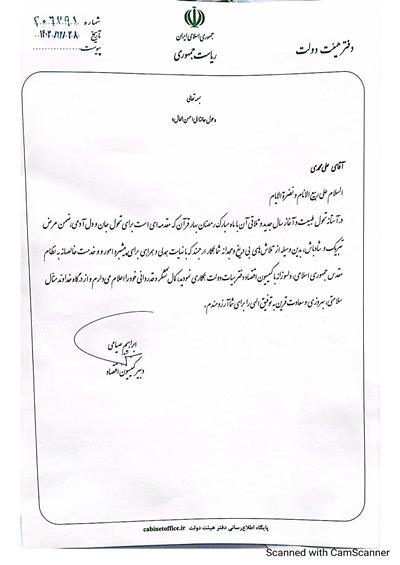 شماره ۲۰۶۷۹۱
تاریخ ۱۴۰۲/۱۲/۲۸
پیوست
جمهوری اسلامی ایران
ریاست جمهوری
دفتر هیئت دولت
بسمه تعالی
«حول حالنا الی احسن الحال»
آقای علی محمدی
السلام علی ربیع الانام و نضرة الایام
در آستانه تحول طبیعت و آغاز سال جدید و تلاقی آن با ماه مبارک رمضان بهار قرآن که مقدمه‌ای است برای تحول جان و دل آدمی، ضمن عرض
تبریک و شادباش، بدین وسیله از تلاش‌های بی دریغ و مجدانه شما همکار ارجمند که با نهایت همدلی و همراهی برای پیشبرد امور و خدمت خالصانه به نظام
مقدس جمهوری اسلامی، دلسوزانه با کمیسیون اقتصاد دفتر هیات دولت همکاری نمودید، کمال تشکر و قدردانی خود را اعلام می‌دارم و از درگاه خداوند متعال
سلامتی، بهروزی و سعادت قرین به توفیق الهی را برای شما آرزومندم.
ابراهیم صیامی
دبیر کمیسیون اقتصاد
پایگاه اطلاع رسانی دفتر هیئت دولت cabinetoffice.ir
Scanned with CamScanner